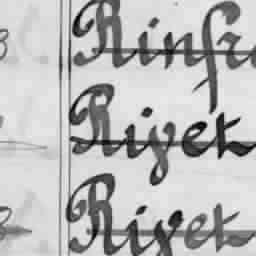 Rinfr
Rivet
Rivet